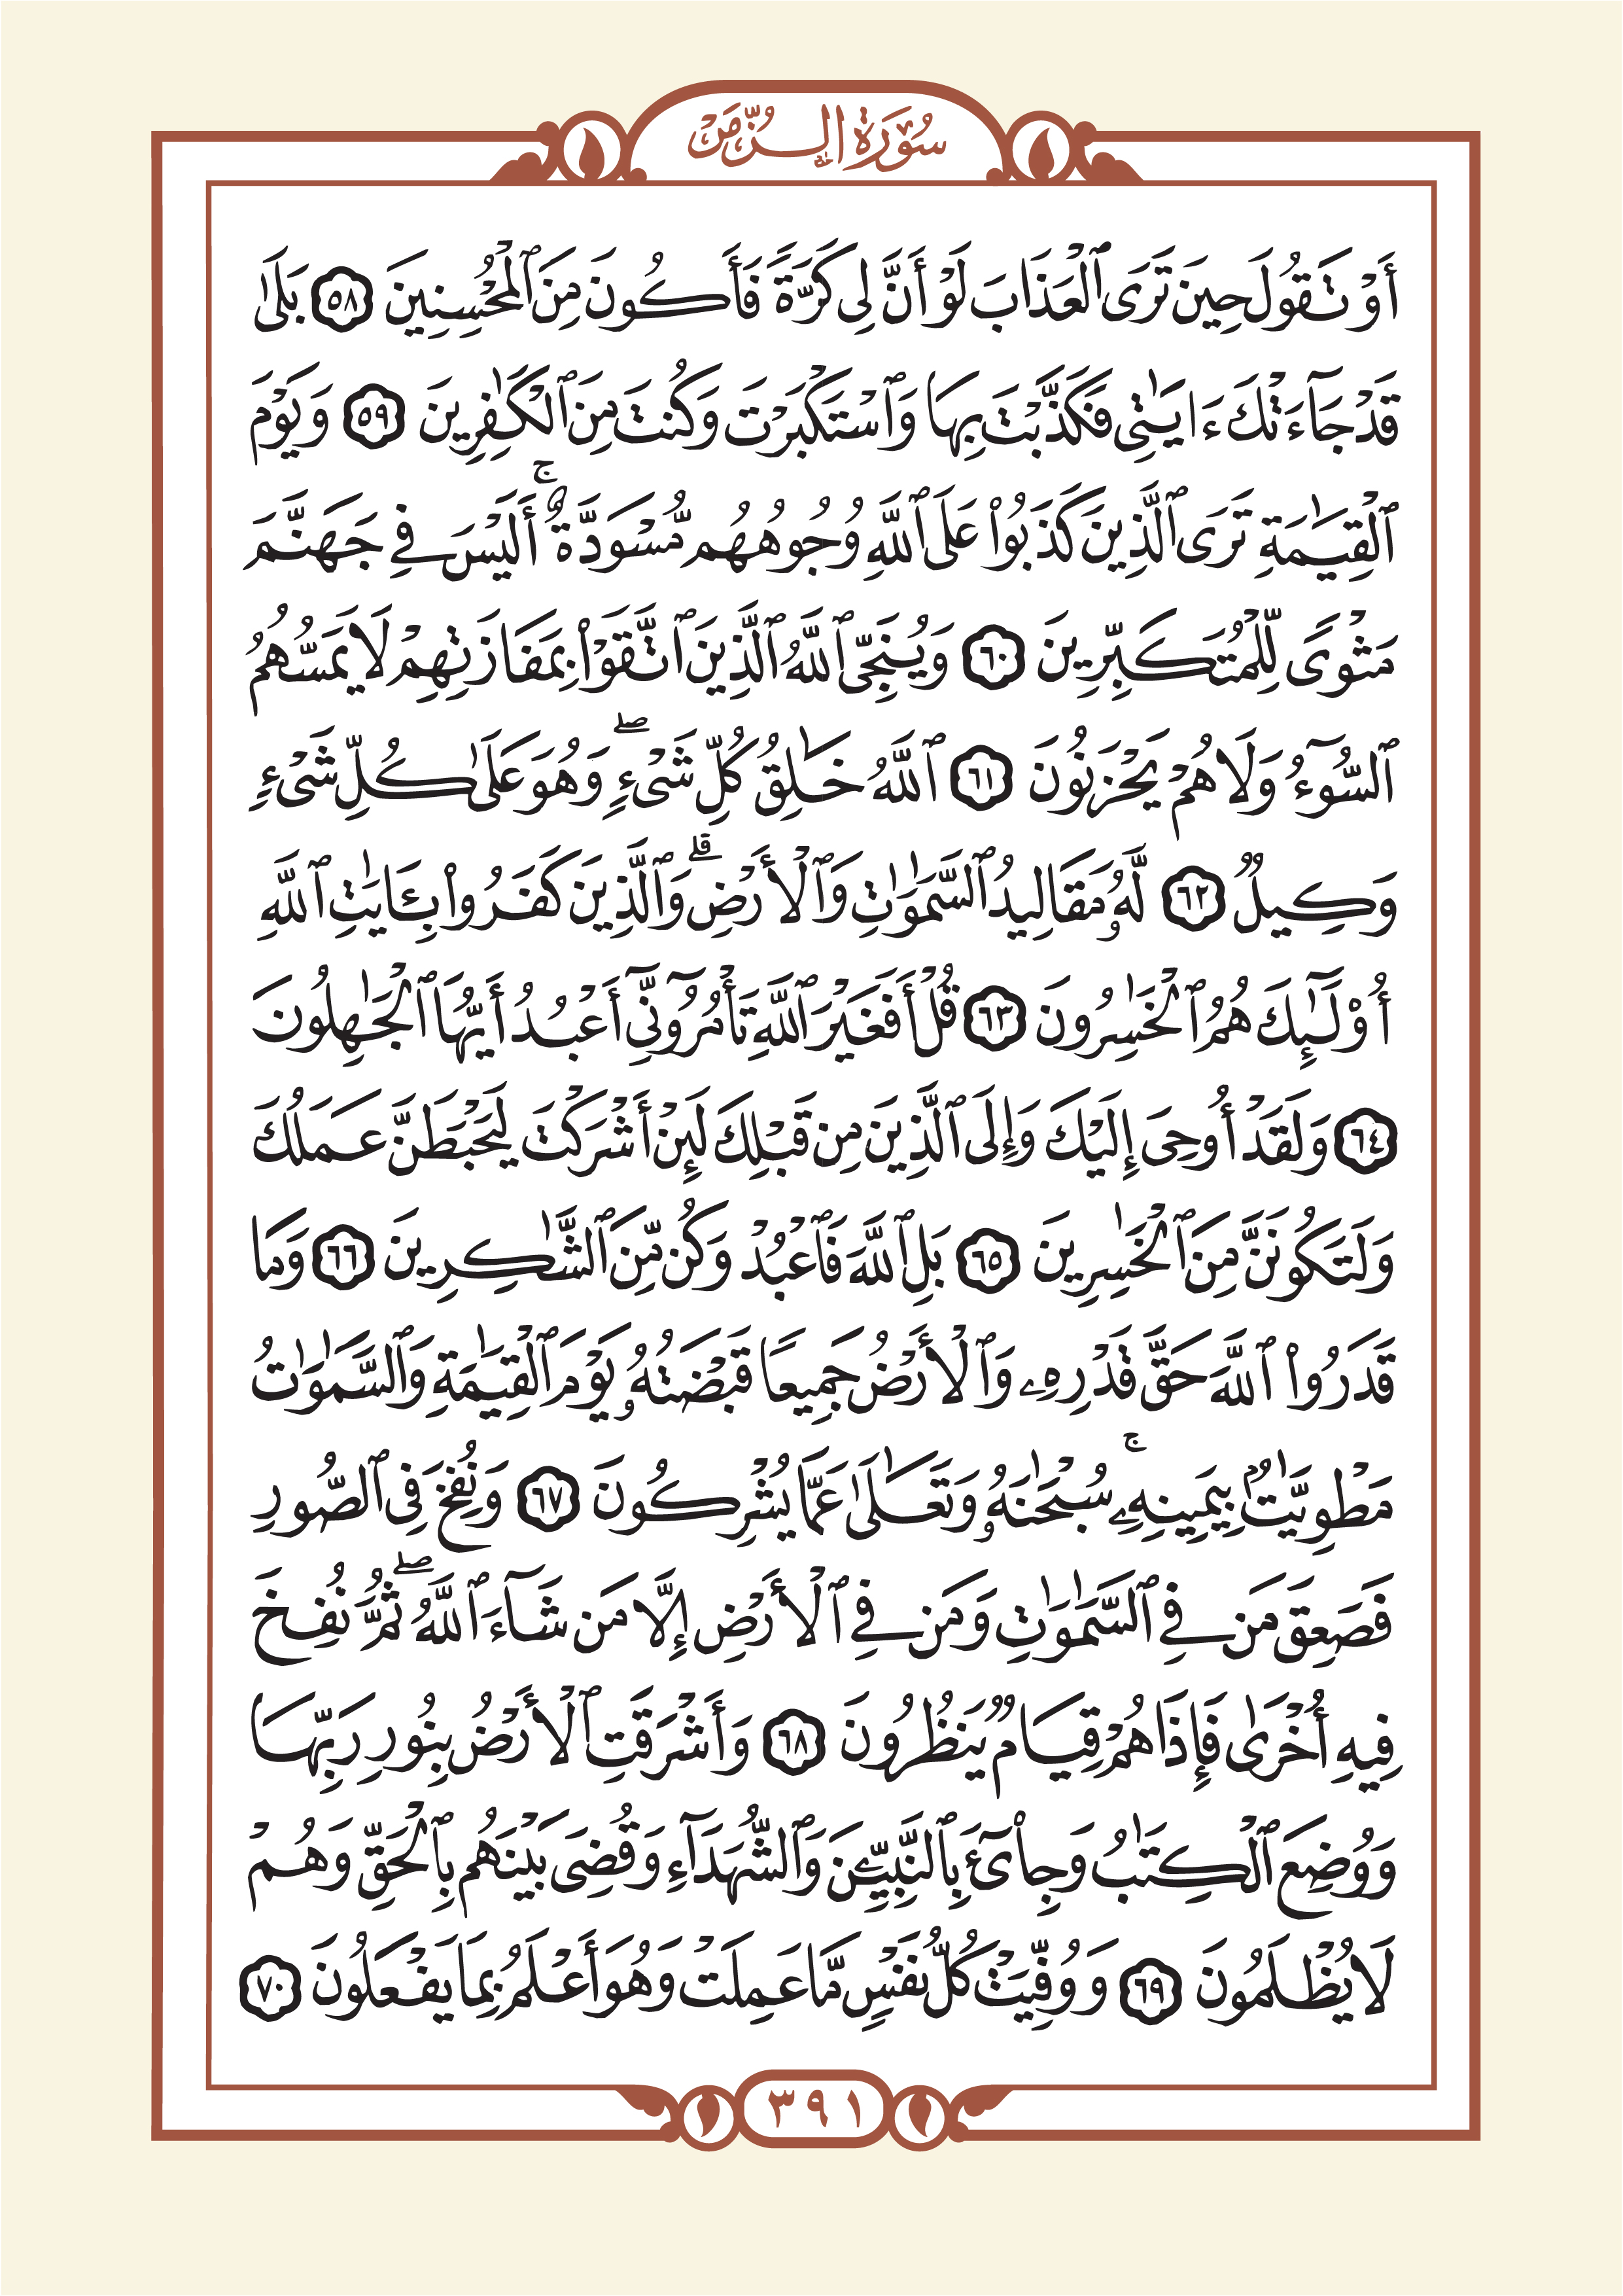 سُورَةُ الزُّمَرِ
أَوْ تَقُولَ حِينَ تَرَى ٱلْعَذَابَ لَوْ أَنَّ لِى كَرَّةً فَأَكُونَ مِنَ ٱلْمُحْسِنِينَ ٥٨ بَلَىٰ
قَدْ جَآءَتْكَ ءَايَـٰتِى فَكَذَّبْتَ بِهَا وَٱسْتَكْبَرْتَ وَكُنتَ مِنَ ٱلْكَـٰفِرِينَ ٥٩ وَيَوْمَ
ٱلْقِيَـٰمَةِ تَرَى ٱلَّذِينَ كَذَبُوا۟ عَلَى ٱللَّهِ وُجُوهُهُم مُّسْوَدَّةٌ ۚ أَلَيْسَ فِى جَهَنَّمَ
مَثْوًى لِّلْمُتَكَبِّرِينَ ٦٠ وَيُنَجِّى ٱللَّهُ ٱلَّذِينَ ٱتَّقَوْا۟ بِمَفَازَتِهِمْ لَا يَمَسُّهُمُ
ٱلسُّوٓءُ وَلَا هُمْ يَحْزَنُونَ ٦١ ٱللَّهُ خَـٰلِقُ كُلِّ شَىْءٍ ۖ وَهُوَ عَلَىٰ كُلِّ شَىْءٍ
وَكِيلٌ ٦٢ لَّهُۥ مَقَالِيدُ ٱلسَّمَـٰوَٰتِ وَٱلْأَرْضِ ۗ وَٱلَّذِينَ كَفَرُوا۟ بِـَٔايَـٰتِ ٱللَّهِ
أُو۟لَـٰٓئِكَ هُمُ ٱلْخَـٰسِرُونَ ٦٣ قُلْ أَفَغَيْرَ ٱللَّهِ تَأْمُرُوٓنِّىٓ أَعْبُدُ أَيُّهَا ٱلْجَـٰهِلُونَ
٦٤ وَلَقَدْ أُوحِىَ إِلَيْكَ وَإِلَى ٱلَّذِينَ مِن قَبْلِكَ لَئِنْ أَشْرَكْتَ لَيَحْبَطَنَّ عَمَلُكَ
وَلَتَكُونَنَّ مِنَ ٱلْخَـٰسِرِينَ ٦٥ بَلِ ٱللَّهَ فَٱعْبُدْ وَكُن مِّنَ ٱلشَّـٰكِرِينَ ٦٦ وَمَا
قَدَرُوا۟ ٱللَّهَ حَقَّ قَدْرِهِۦ وَٱلْأَرْضُ جَمِيعًا قَبْضَتُهُۥ يَوْمَ ٱلْقِيَـٰمَةِ وَٱلسَّمَـٰوَٰتُ
مَطْوِيَّـٰتٌۢ بِيَمِينِهِۦ ۚ سُبْحَـٰنَهُۥ وَتَعَـٰلَىٰ عَمَّا يُشْرِكُونَ ٦٧ وَنُفِخَ فِى ٱلصُّورِ
فَصَعِقَ مَن فِى ٱلسَّمَـٰوَٰتِ وَمَن فِى ٱلْأَرْضِ إِلَّا مَن شَآءَ ٱللَّهُ ۖ ثُمَّ نُفِخَ
فِيهِ أُخْرَىٰ فَإِذَا هُمْ قِيَامٌ يَنظُرُونَ ٦٨ وَأَشْرَقَتِ ٱلْأَرْضُ بِنُورِ رَبِّهَا
وَوُضِعَ ٱلْكِتَـٰبُ وَجِا۟ىٓءَ بِٱلنَّبِيِّـۧنَ وَٱلشُّهَدَآءِ وَقُضِىَ بَيْنَهُم بِٱلْحَقِّ وَهُمْ
لَا يُظْلَمُونَ ٦٩ وَوُفِّيَتْ كُلُّ نَفْسٍ مَّا عَمِلَتْ وَهُوَ أَعْلَمُ بِمَا يَفْعَلُونَ ٧٠
٣٩١